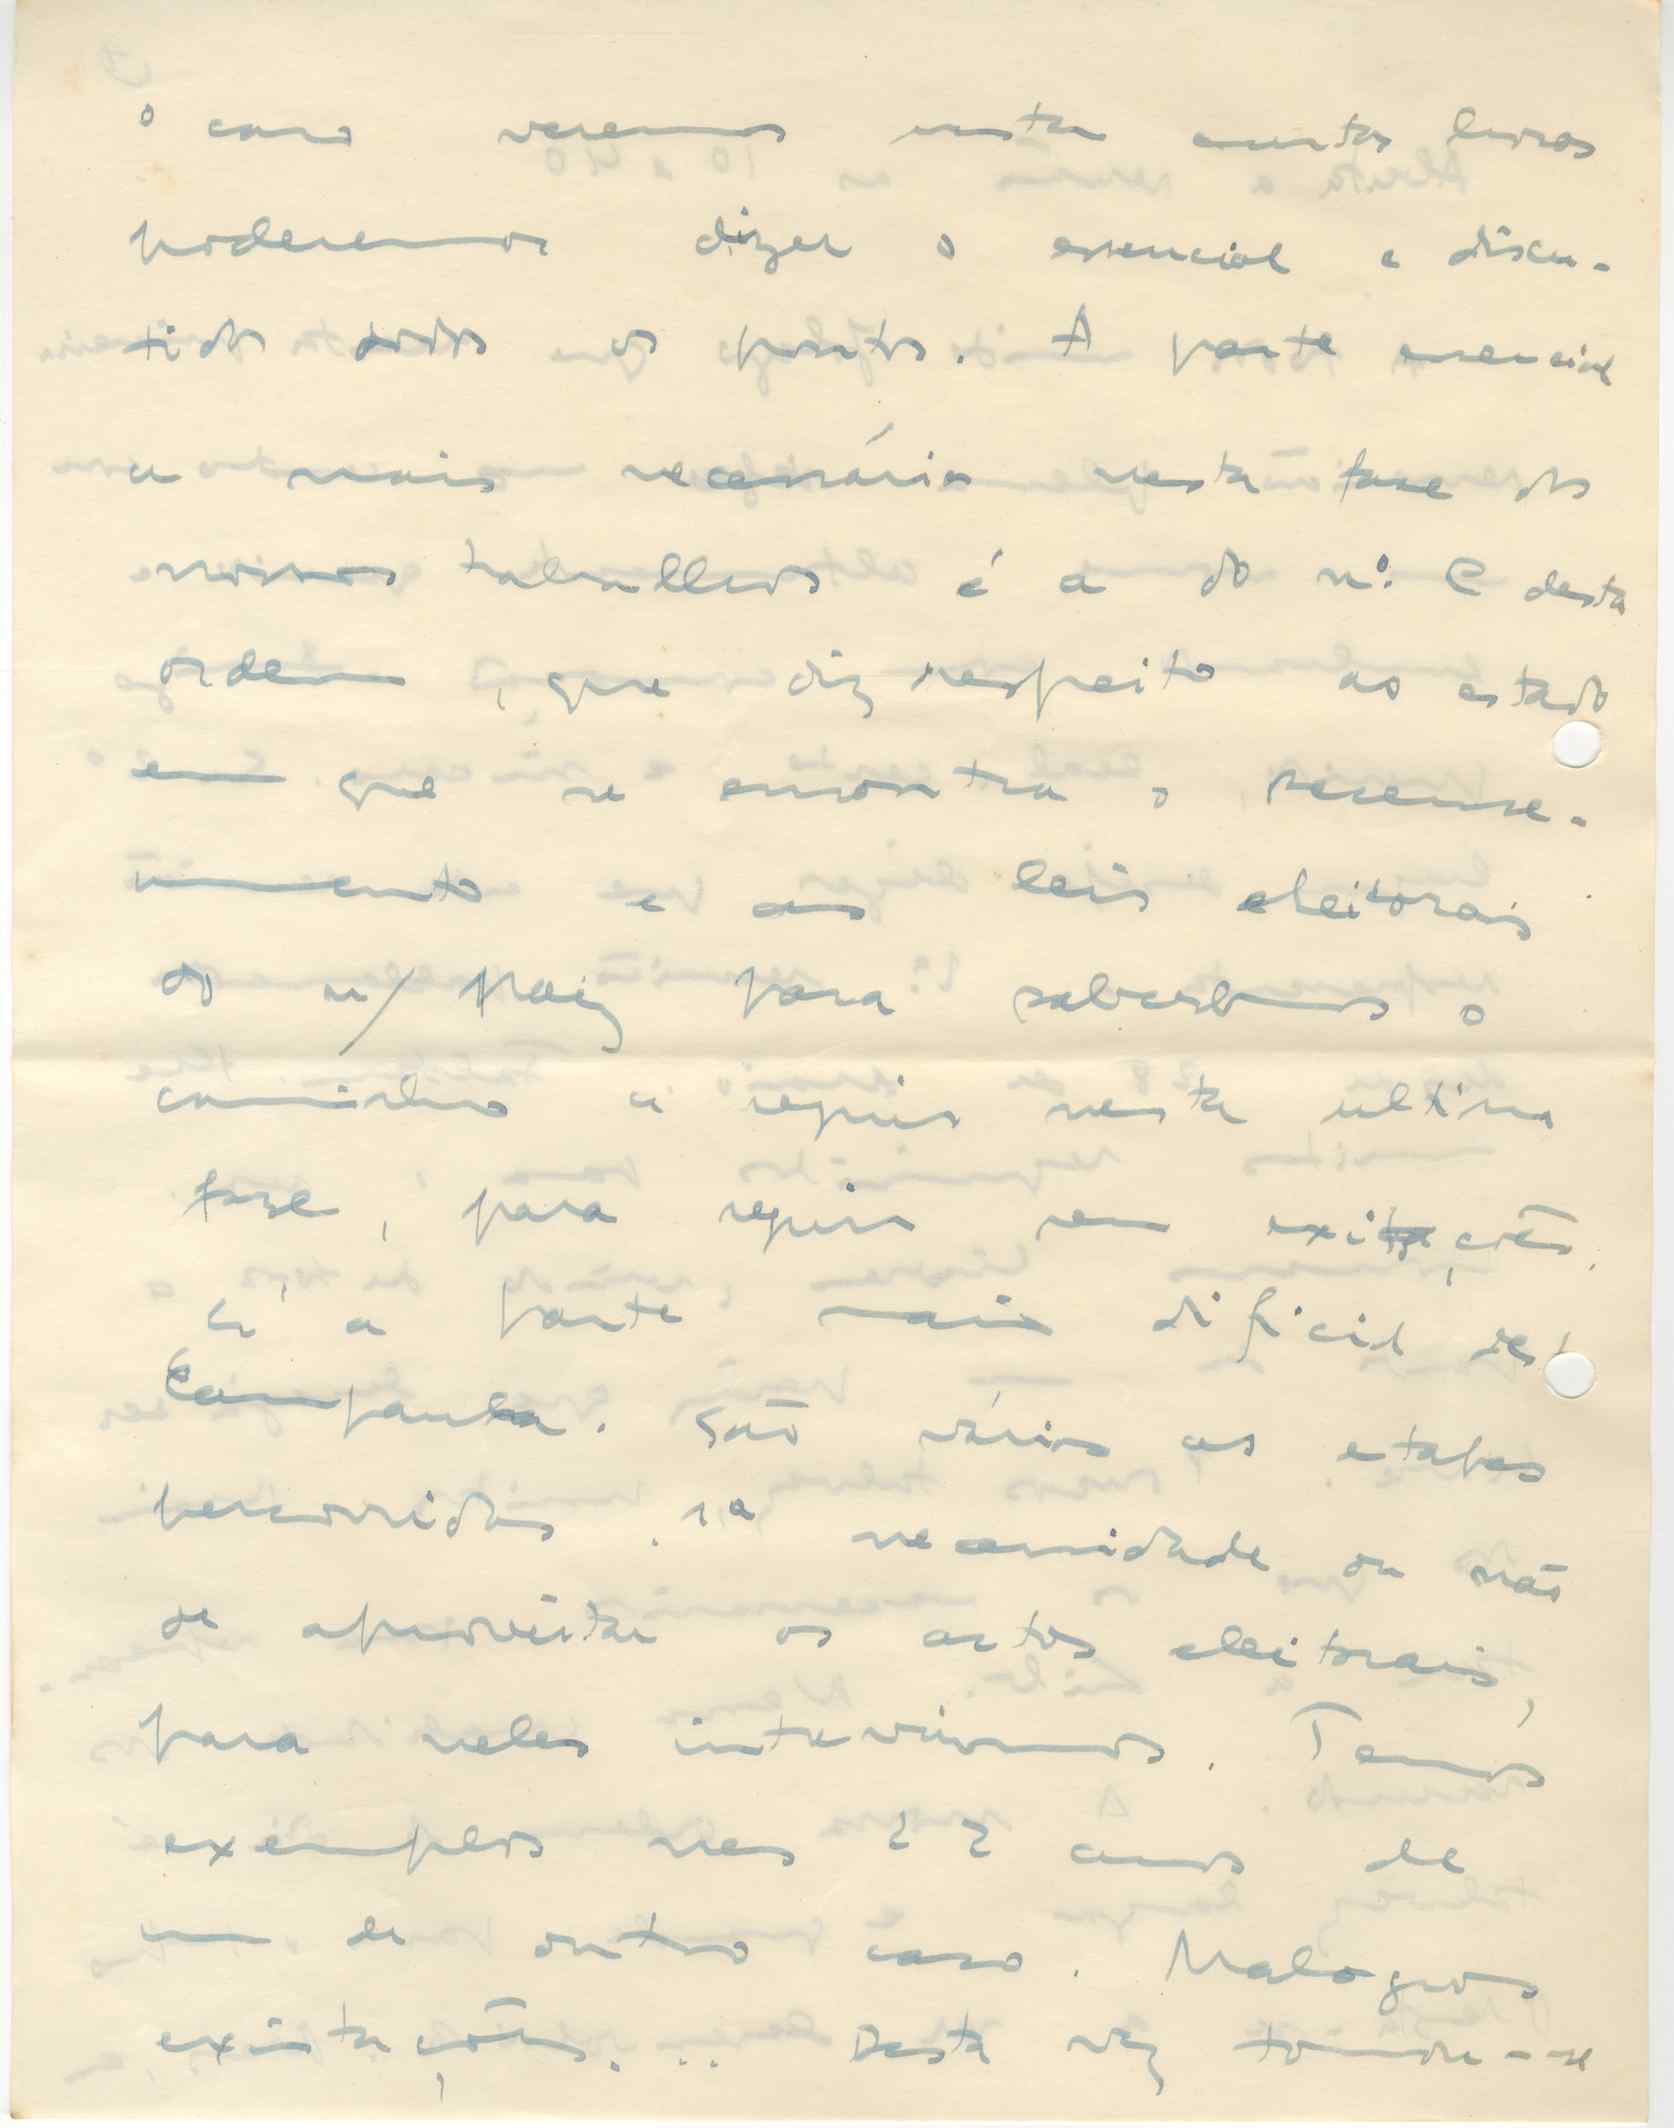 o caso veremos nesta curtas horas
poderemos dizer o essencial e discu-
tidos todos os pontos. A parte essencial
a mais necessária nesta fase dos
nossos trabalhos é a do nº. C desta
ordem, que diz respeito ao estado
em que se encontra o recense-
amento e as leis eleitorais
do n/ Paiz para sabermos o
caminho a seguir nesta ultima
fase, para seguir sem exitações.
É a parte mais dificil des
Campanha. São várias as etapas
percorridas. 1ª necessidade ou não
de aproveitar os actos eleitorais,
para neles intervirmos. Temos
exemplos nes 22 anos de
um de outro caso. Malogros
exitações... Desta vez tomou-se